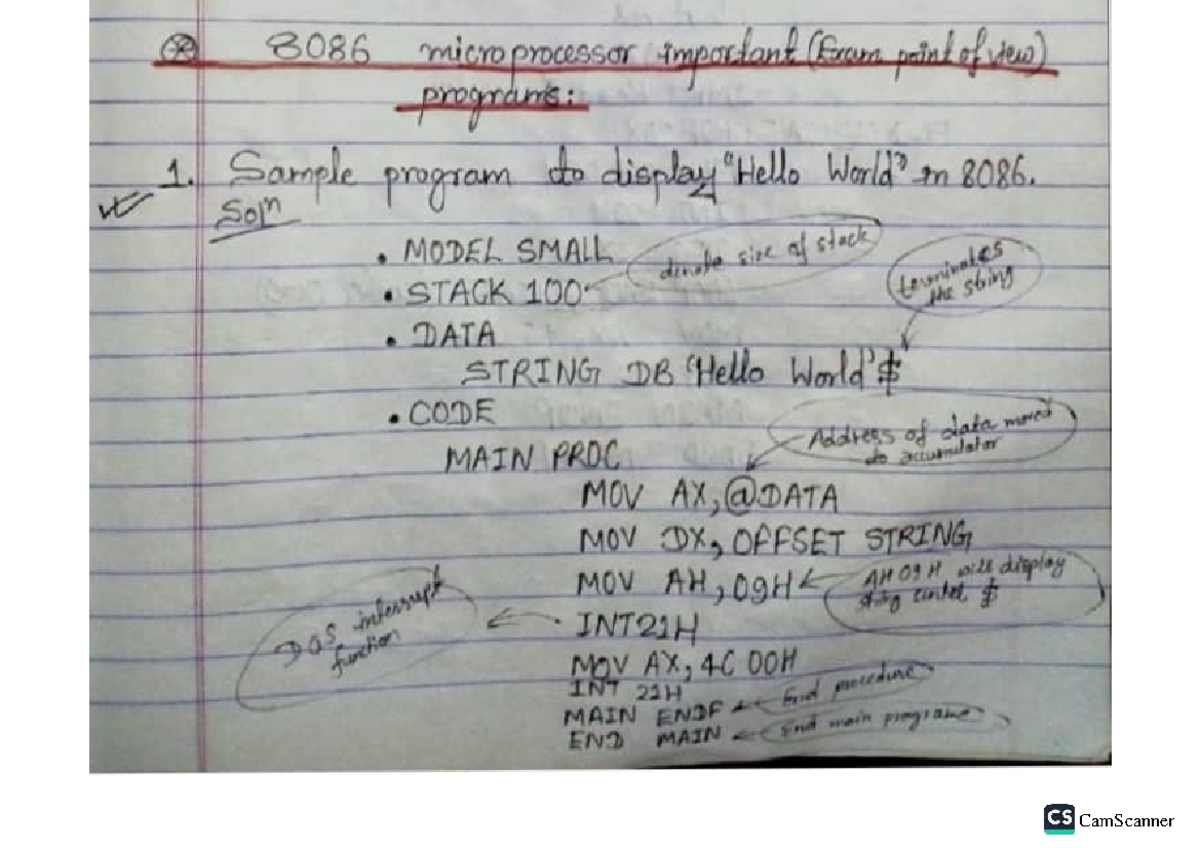 ⊛ 8086 microprocessor important (Exam point of view)
programs:
1. Sample program to display "Hello World" in 8086.
Solⁿ
. MODEL SMALL
denote size of stack
. STACK 100
terminates
the string
. DATA
STRING DB 'Hello World' $
. CODE
Address of data moved
to accumulator
MAIN PROC
MOV AX, @DATA
MOV DX, OFFSET STRING
MOV AH, 09H
AH 09H will display
string until $
DOS interrupt
function
INT21H
MOV AX, 4C 00H
INT 21H
MAIN ENDP End procedure
END MAIN End main programe
CS CamScanner